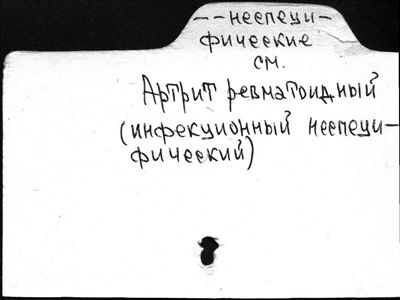 --неспеци-
фические
см.
Артрит ревматоидный
(инфекционный неспеци-
фический)